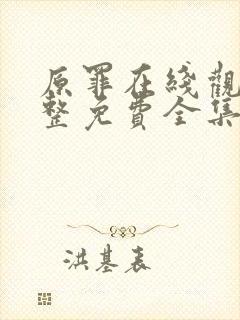 原罪在綫觀
整免費全集
洪基表